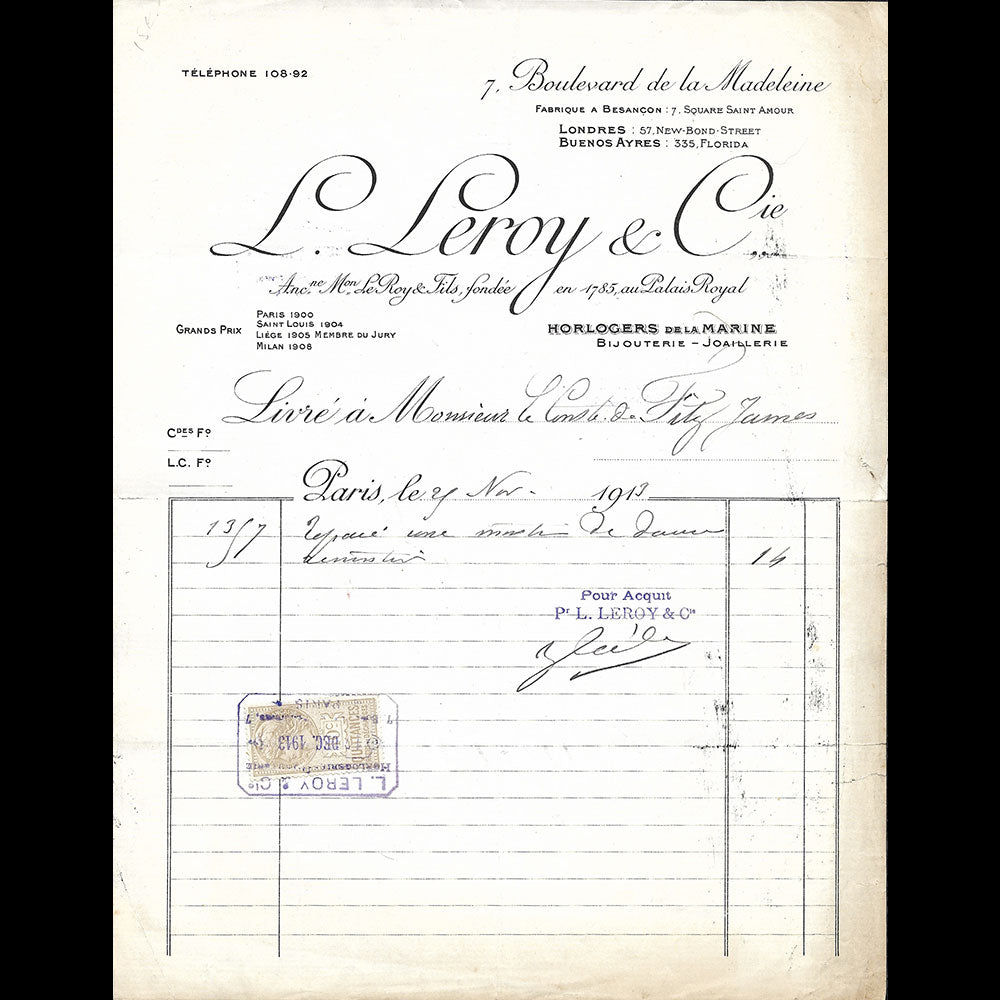 TÉLÉPHONE 108-92
7, Boulevard de la Madeleine
FABRIQUE A BESANÇON : 7, SQUARE SAINT AMOUR
LONDRES : 57, NEW-BOND-STREET
BUENOS AYRES : 335, FLORIDA
L. Leroy & Cie
Ancne Mon Le Roy & Fils, fondée en 1785, au Palais Royal
GRANDS PRIX
PARIS 1900
SAINT LOUIS 1904
LIÉGE 1905 MEMBRE DU JURY
MILAN 1908
HORLOGERS DE LA MARINE
BIJOUTERIE – JOAILLERIE
Livré à Monsieur le Comte de Fitz James
CDES Fo
L.C. Fo
Paris, le Nov. 1913
Réparé une montre de dame
remontoir 14
Pour Acquit
Pr L. LEROY & Cie
QUITTANCES
PARIS
DEC. 1913
L. LEROY & Cie